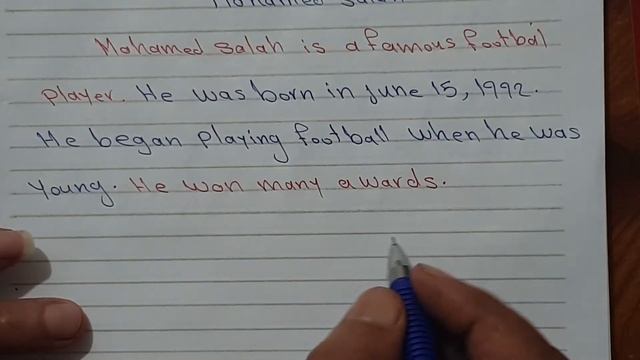 Mohamed Salah
Mohamed Salah is a famous footbal
player. He was born in June 15, 1992.
He began playing football when he was
young. He won many awards.